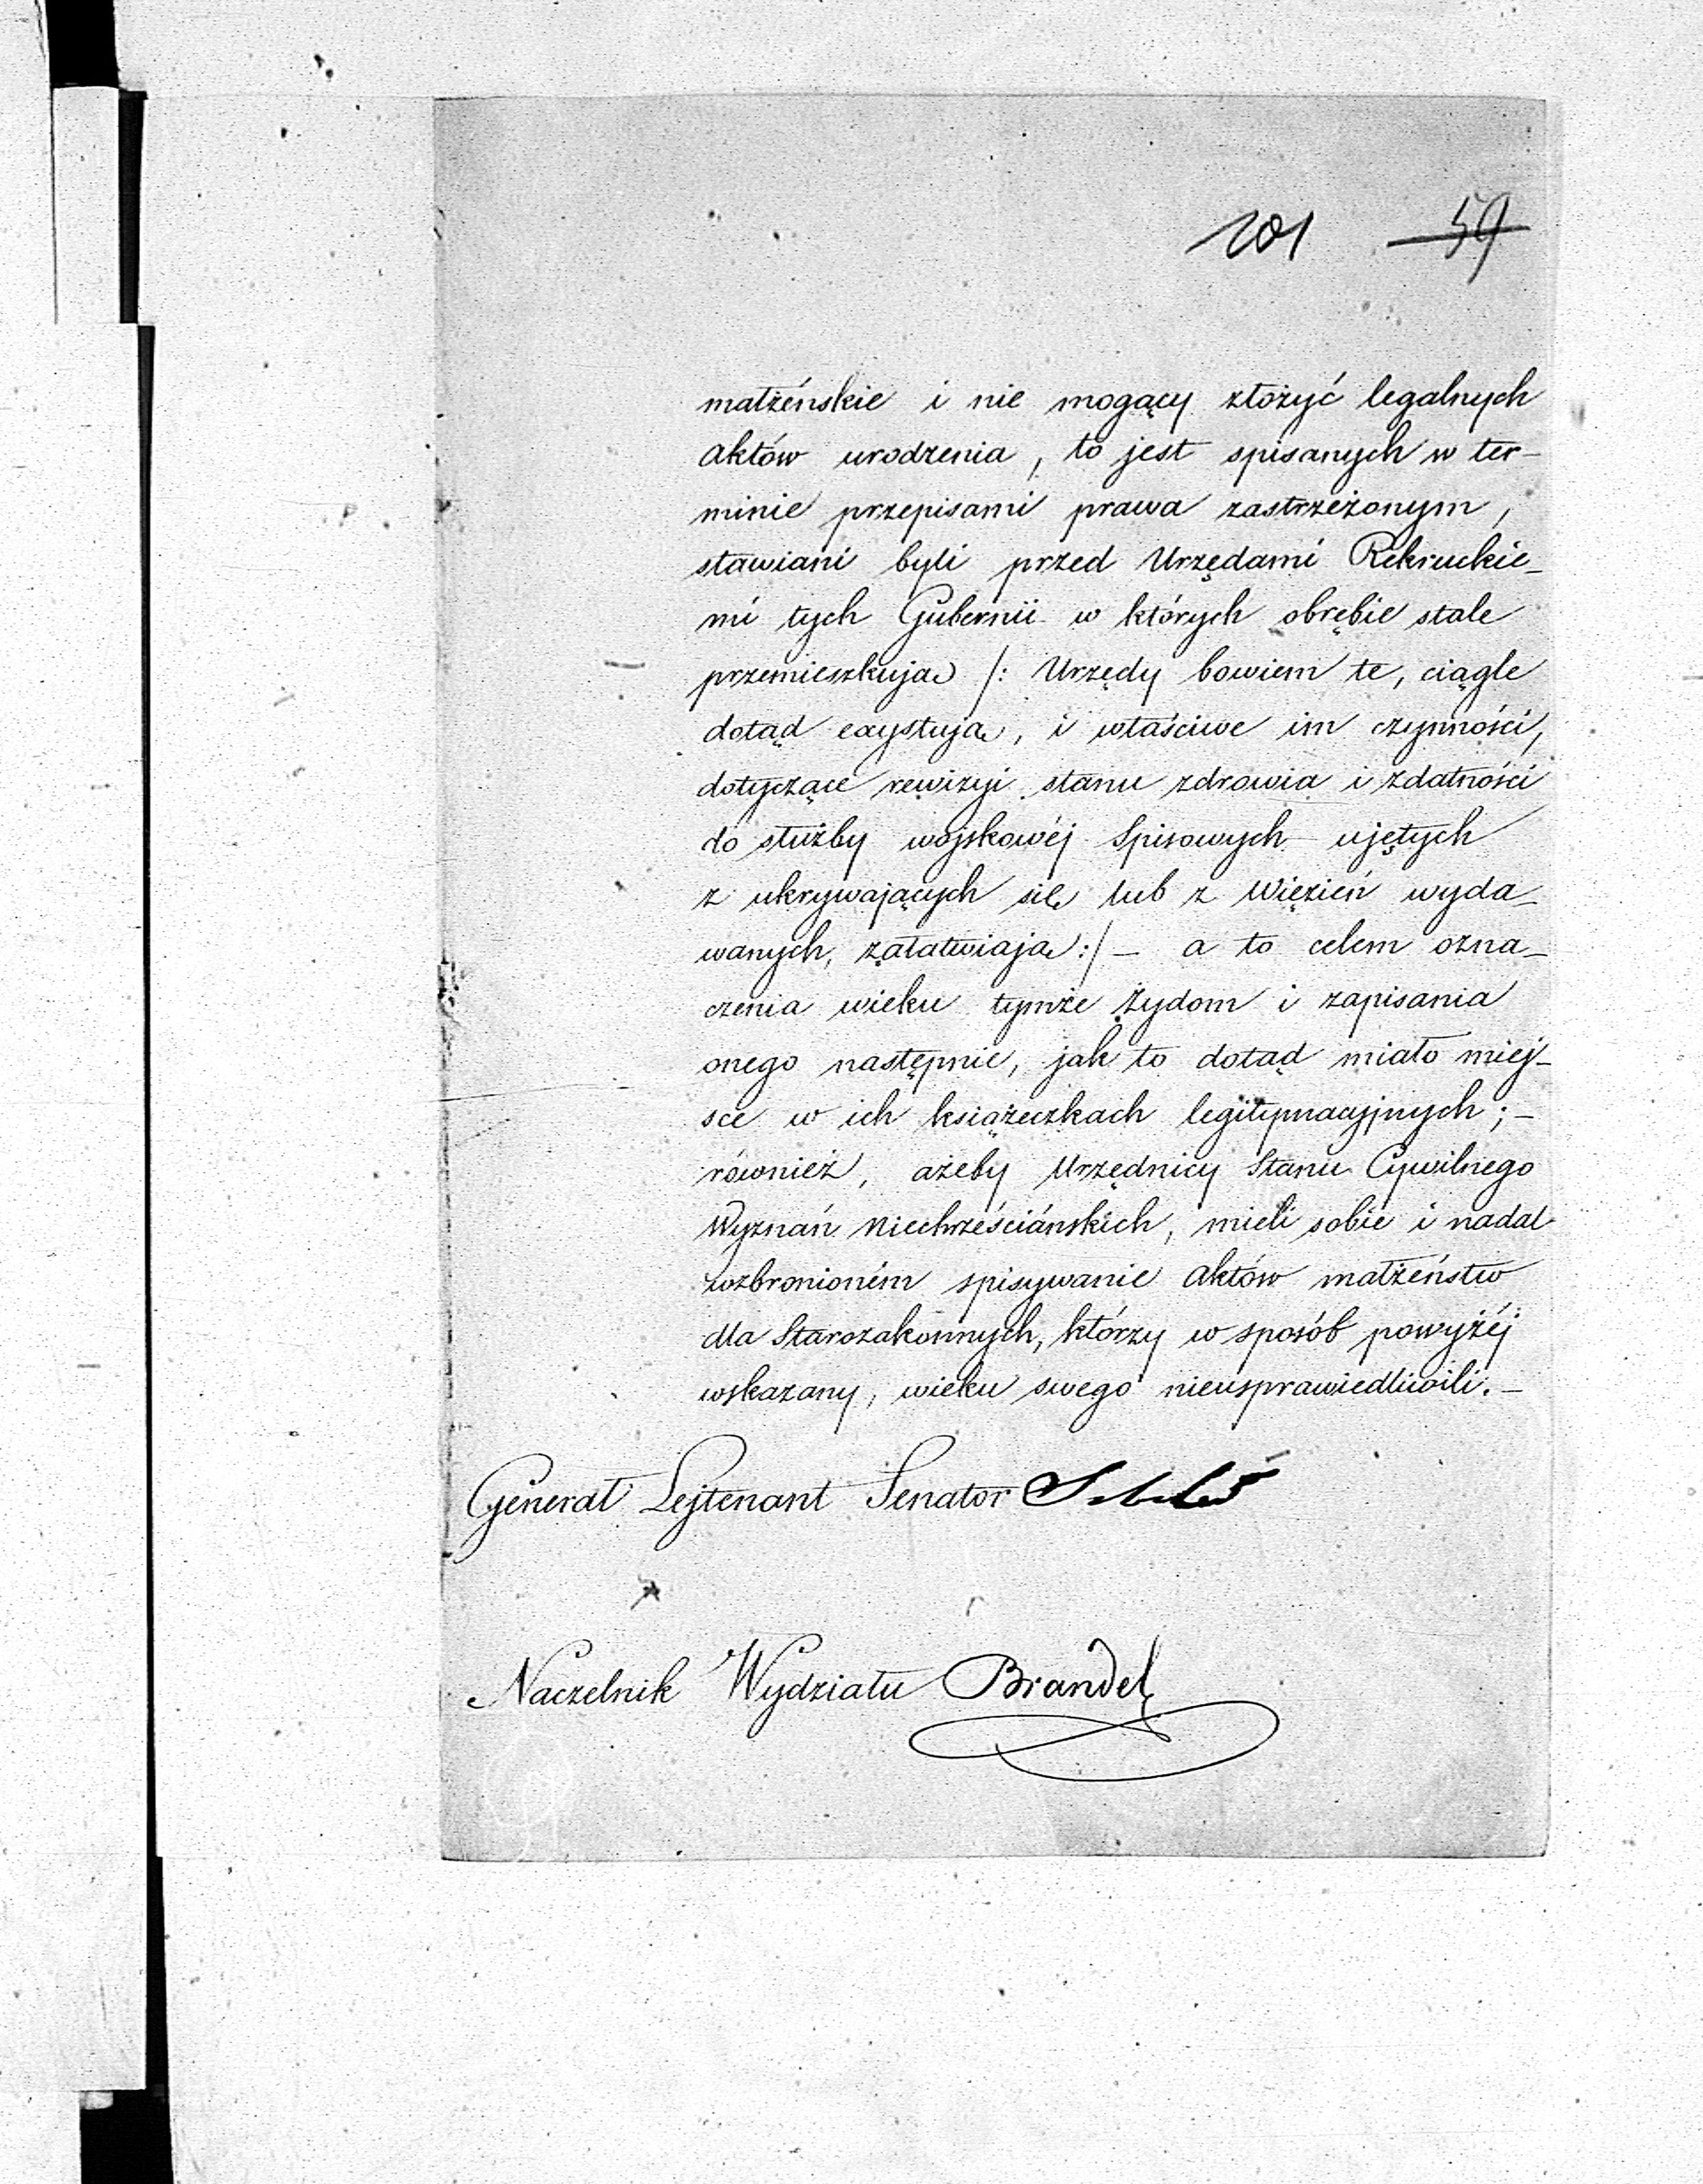 101 59
małżeńskie i nie mogący złożyć legalnych
aktów urodzenia, to jest spisanych w ter-
minie przepisami prawa zastrzeżonym,
stawiani byli przed Urzędami Rekruckie-
mi tych Gubernii w których obrębie stale
przemieszkują /: Urzędy bowiem te, ciągle
dotąd exystują, i właściwe im czynności,
dotyczące rewizyi stanu zdrowia i zdatności
do służby wojskowéj Spisowych ujętych
z ukrywających się lub z Więzień wyda-
wanych, załatwiają :/ - a to celem ozna-
czenia wieku tymże Żydom i zapisania
onego następnie, jak to dotąd miało miej-
sce w ich książeczkach legitymacyjnych; -
również, ażeby Urzędnicy Stanu Cywilnego
Wyznań Niechrześciánskich, mieli sobie i nadal
wzbronioném spisywanie aktów małżeństw
dla Starozakonnych, którzy w sposób powyżéj
wskazany, wieku swego nieusprawiedliwili. -
Generał Lejtenant Senator
Naczelnik Wydziału Brandel